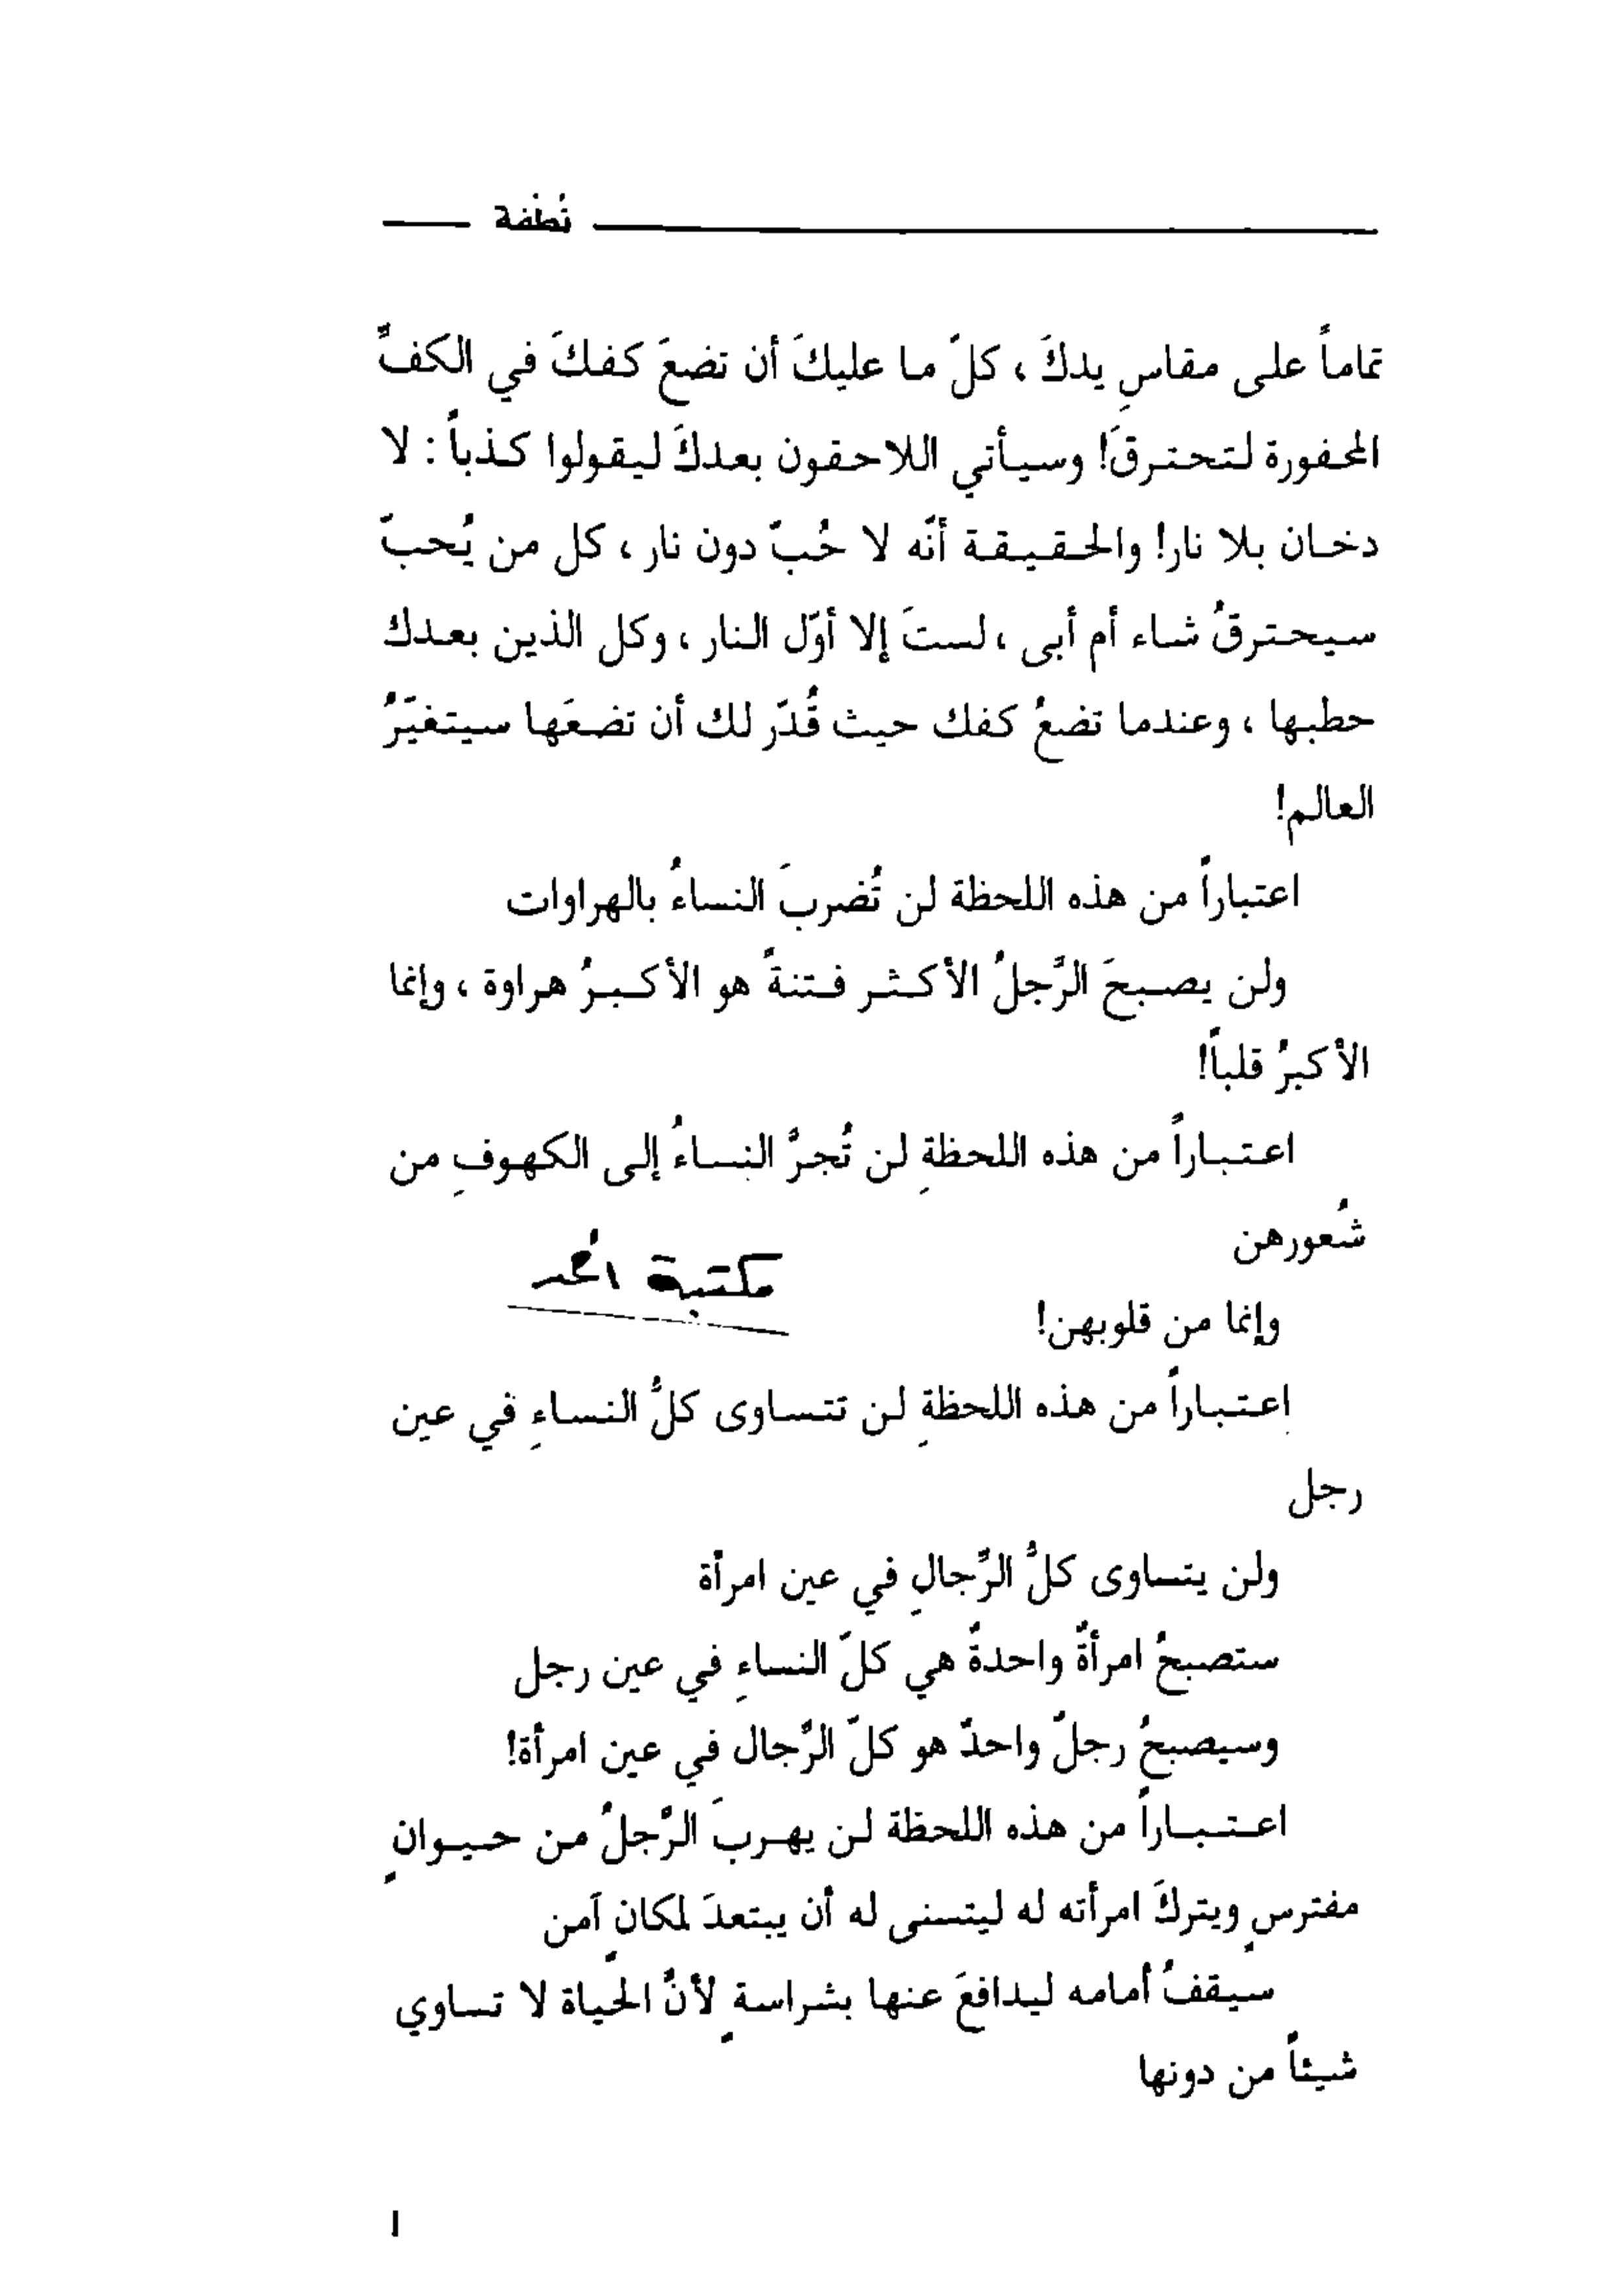 نُطْفة
تماماً على مقاسِ يدكَ ، كلّ ما عليكَ أن تضعَ كفكَ في الكفِّ
المحفورة لتحترقَ! وسيأتي اللاحقون بعدكَ ليقولوا كذباً : لا
دخان بلا نار! والحقيقة أنّه لا حُبّ دون نار ، كل من يُحبّ
سيحترقُ شاء أم أبى ، لستَ إلا أوّل النار ، وكل الذين بعدك
حطبها ، وعندما تضعُ كفك حيث قُدّر لك أن تضعَها سيتغيّرُ
العالم!
اعتباراً من هذه اللحظة لن تُضربَ النساءُ بالهراوات
ولن يصبحَ الرَّجلُ الأكثر فتنةً هو الأكبرُ هراوة ، وإنما
الأكبرُ قلباً!
اعتباراً من هذه اللحظةِ لن تُجرَّ النساءُ إلى الكهوفِ من
شُعورهن
مكتبة
وإنما من قلوبهن!
إعتباراً من هذه اللحظةِ لن تتساوى كلُّ النساءِ في عين
رجل
ولن يتساوى كلُّ الرِّجالِ في عين امرأة
ستصبحُ امرأةٌ واحدةٌ هي كلّ النساءِ في عين رجل
وسيصبحُ رجلٌ واحدٌ هو كلّ الرِّجال في عين امرأة!
اعتباراً من هذه اللحظة لن يهربَ الرَّجلُ من حيوانٍ
مفترسٍ ويتركَ امرأته له ليتسنى له أن يبتعدَ لمكانٍ آمن
سيقفُ أمامه ليدافعَ عنها بشراسةٍ لأنَّ الحياة لا تساوي
شيئاً من دونها